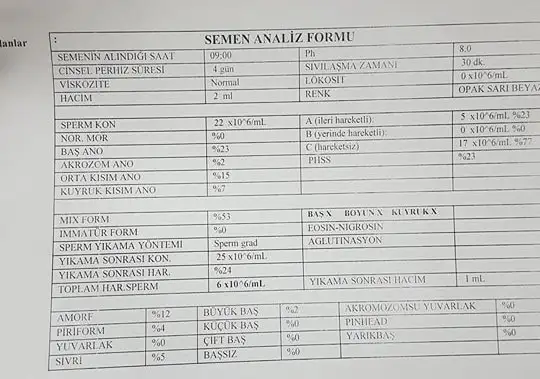 lanlar
: SEMEN ANALİZ FORMU
SEMENİN ALINDIĞI SAAT 09:00 Ph 8.0
CİNSEL PERHİZ SÜRESİ 4 gün SIVILAŞMA ZAMANI 30 dk.
VİSKOZİTE Normal LÖKOSİT 0 x10^6/mL
HACİM 2 ml RENK OPAK SARI BEYAZ
SPERM KON 22 x10^6/mL A (ileri hareketli): 5 x10^6/mL %23
NOR. MOR %0 B (yerinde hareketli): 0 x10^6/mL %0
BAŞ ANO %23 C (hareketsiz) 17 x10^6/mL %77
AKROZOM ANO %2 PHSS %23
ORTA KISIM ANO %15
KUYRUK KISIM ANO %7
MIX FORM %53 BAŞ X BOYUN X KUYRUK X
İMMATÜR FORM %0 EOSIN-NIGROSIN
SPERM YIKAMA YÖNTEMİ Sperm grad AGLUTINASYON
YIKAMA SONRASI KON. 25 x10^6/mL
YIKAMA SONRASI HAR. %24
TOPLAM HAR.SPERM 6 x10^6/mL YIKAMA SONRASI HACİM 1 mL
AMORF %12 BÜYÜK BAŞ %2 AKROMOZOMSU YUVARLAK %0
PİRİFORM %4 KÜÇÜK BAŞ %0 PINHEAD %0
YUVARLAK %0 ÇİFT BAŞ %0 YARIKBAŞ %0
SİVRİ %5 BAŞSIZ %0